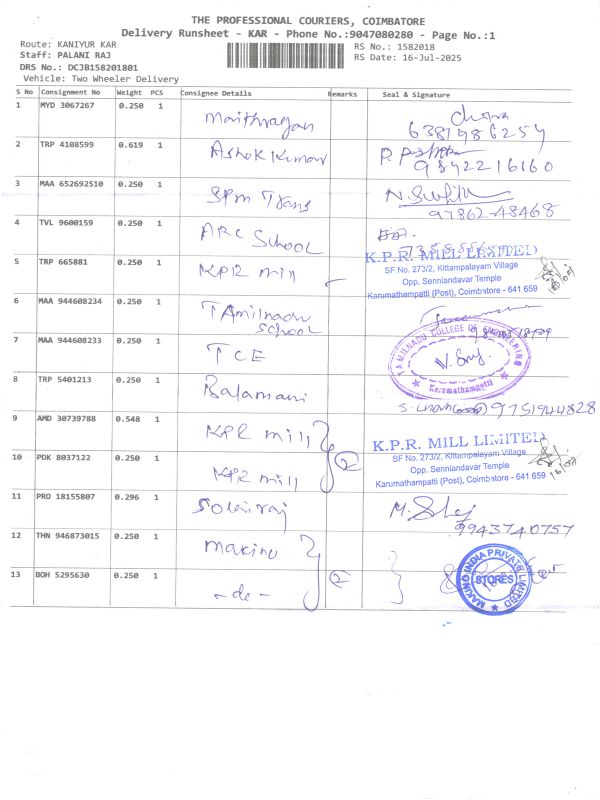 THE PROFESSIONAL COURIERS, COIMBATORE
Delivery Runsheet - KAR - Phone No.:9047080280 - Page No.:1
Route: KANIYUR KAR
RS No.: 1582018
Staff: PALANI RAJ
RS Date: 16-Jul-2025
DRS No.: DCJB158201801
Vehicle: Two Wheeler Delivery
S No Consignment No Weight PCS Consignee Details Remarks Seal & Signature
1 MYD 3067267 0.250 1
6381986254
2 TRP 4108599 0.619 1 Ashok Kumar
9842216160
3 MAA 652692510 0.250 1 SPM Trans
97862-48468
4 TVL 9600159 0.250 1 ARC School
5 TRP 665881 0.250 1 KPR mill
K.P.R. MILL LIMITED
SF No. 273/2, Kittampalayam Village
Opp. Senniandavar Temple
Karumathampatti (Post), Coimbatore - 641 659
6 MAA 944608234 0.250 1 TAmilnadu School
7 MAA 944608233 0.250 1 TCE
TAMILNADU COLLEGE OF ENGINEERING
Karumathampatti
8 TRP 5401213 0.250 1 Balamani
9751944828
9 AMD 30739788 0.548 1 KPR mill
2
K.P.R. MILL LIMITED
SF No. 273/2, Kittampalayam Village
Opp. Senniandavar Temple
Karumathampatti (Post), Coimbatore - 641 659
10 PDK 8037122 0.250 1 KPR mill
11 PRO 18155807 0.296 1 Solairaj
9943740757
12 THN 946873015 0.250 1 makino
2
MAKINO INDIA PRIVATE LIMITED
STORES
13 BOH 5295630 0.250 1 - do -